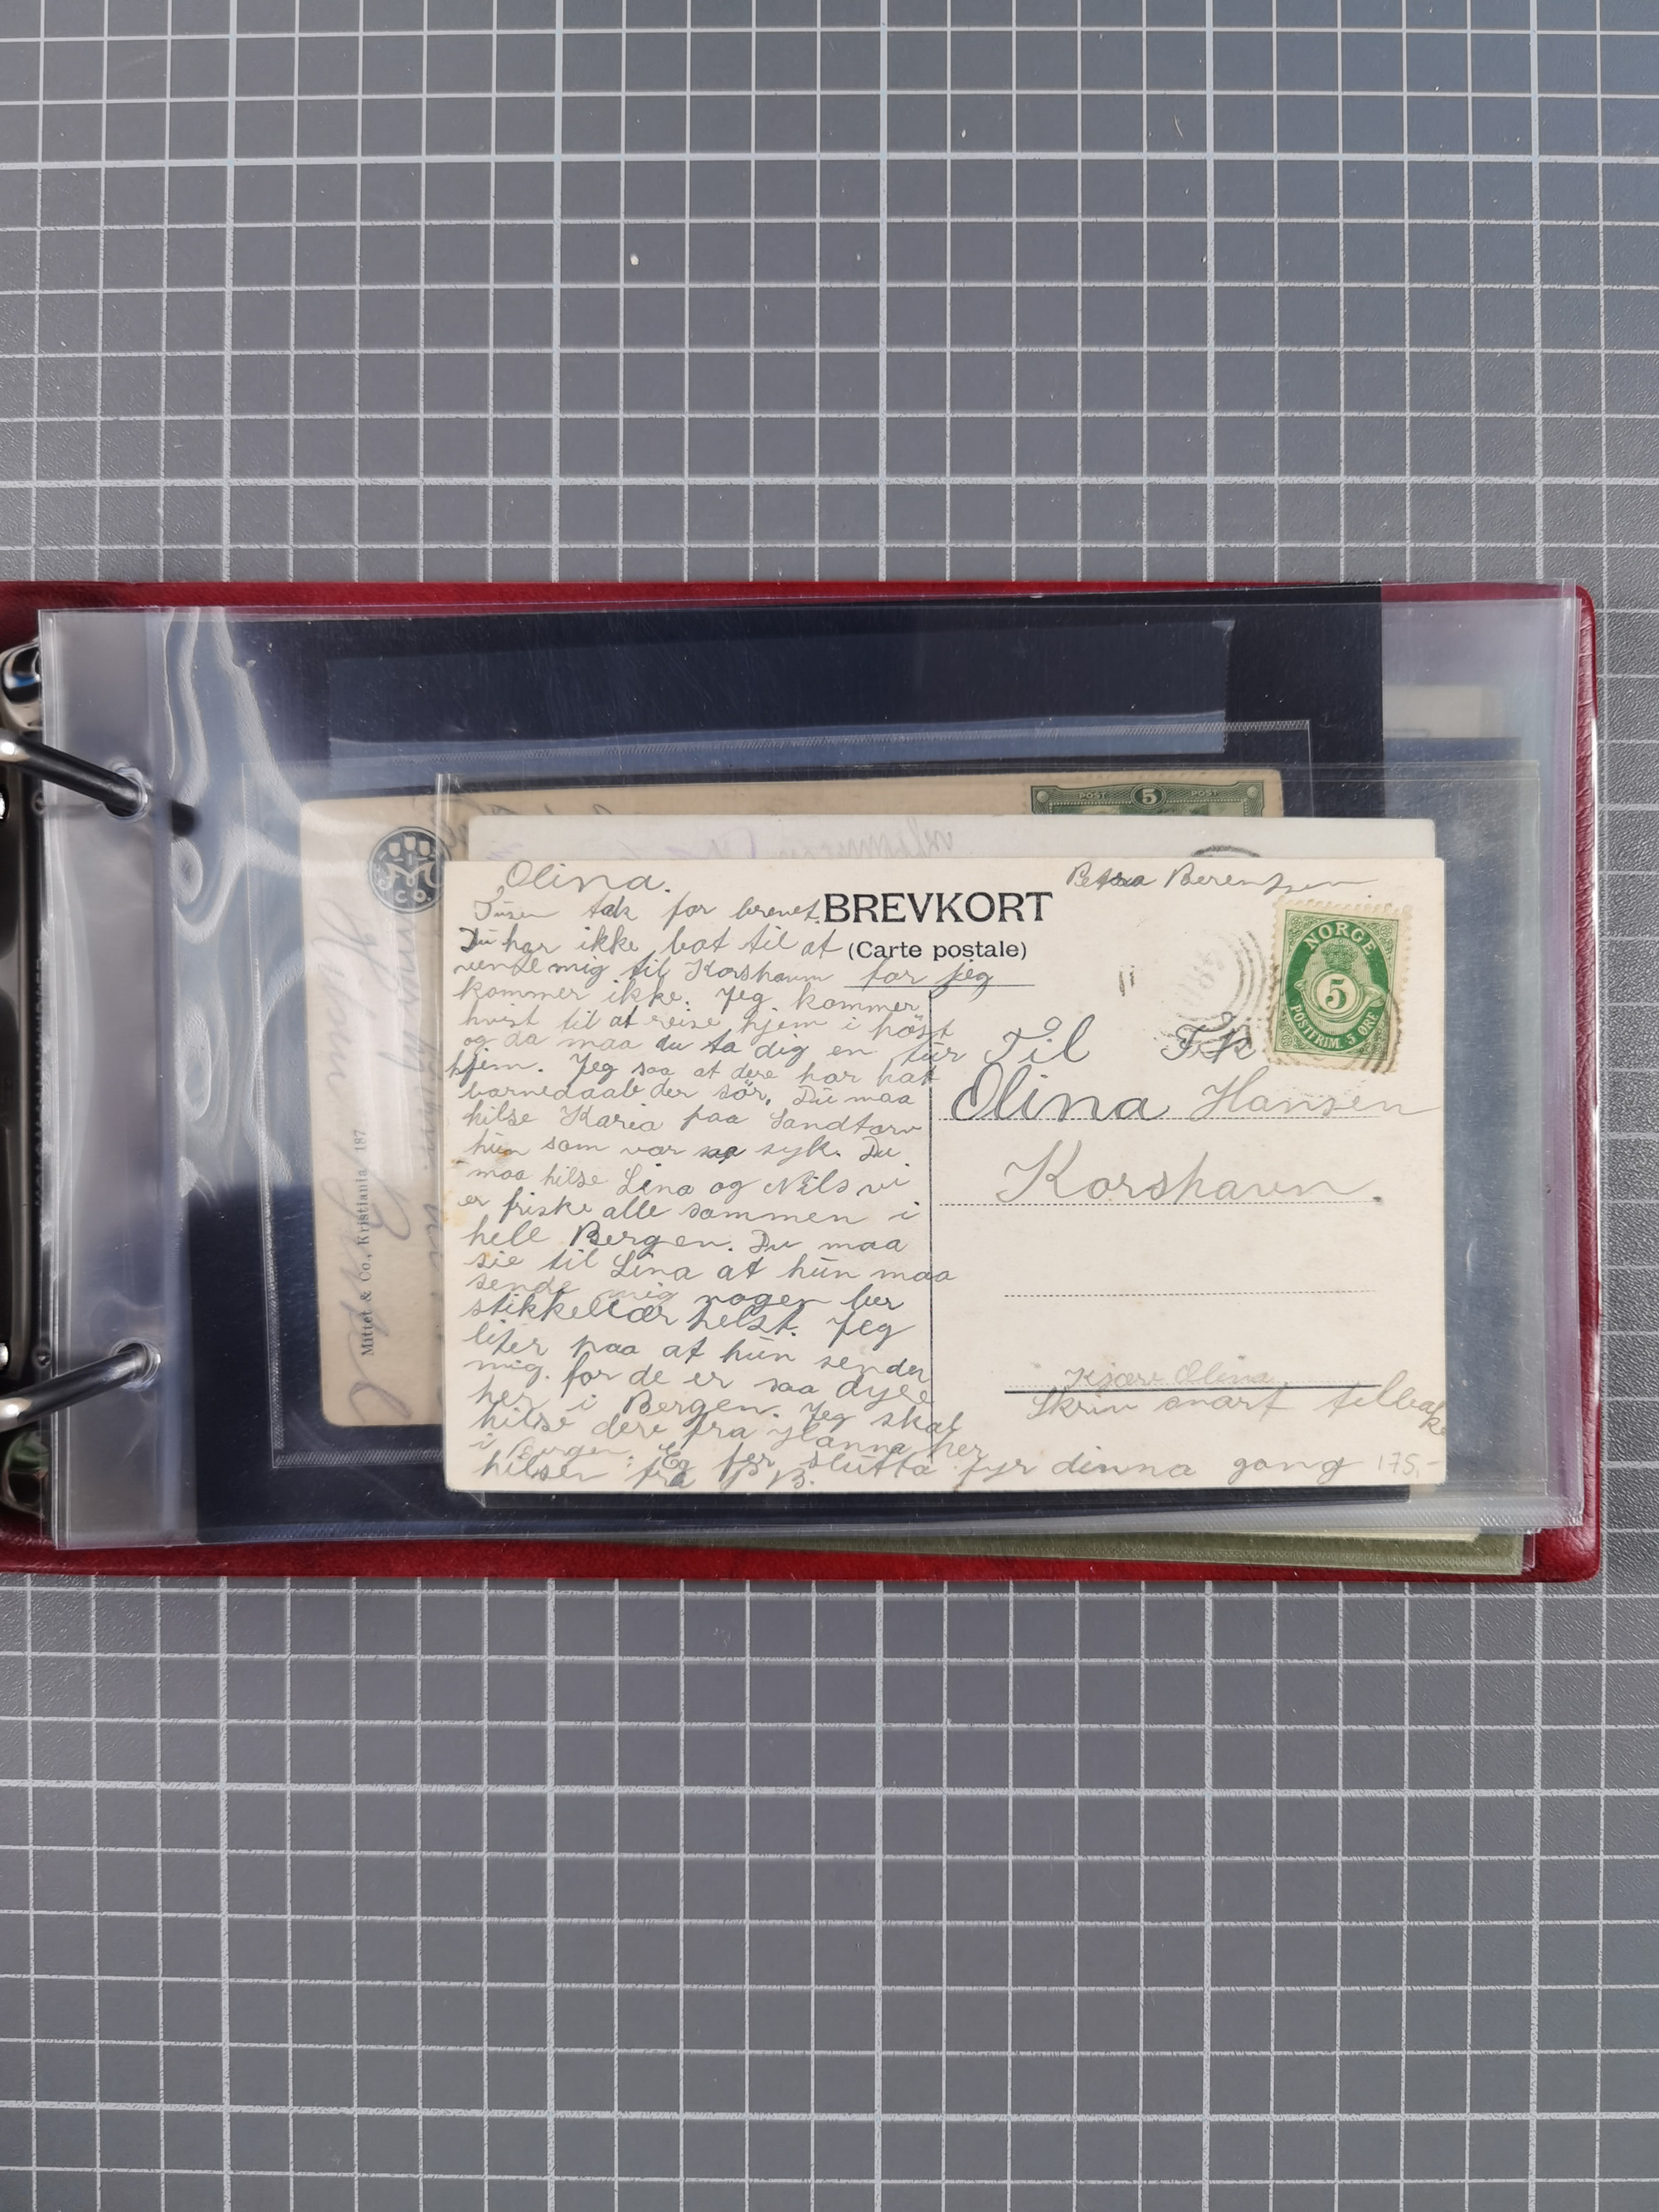 Olina.
Tusen tak for brevet.
Du har ikke bot til at
vente mig til Korshavn for jeg
kommer ikke. Jeg kommer
hvist til at reise hjem i høst
og da maa du ta dig en tur
hjem. Jeg saa at dere har hat
barnedaab der sør. Du maa
hilse Karia paa Sandtorv
hun som var saa syk. Du
maa hilse Lina og Nils vi
er friske alle sammen i
hele Bergen. Du maa
sie til Lina at hun maa
sende mig nogen ber
stikkelbær helst. Jeg
liter paa at hun sender
mig. for de er saa dyre
her i Bergen. Jeg skal
hilse dere fra Hanna her
i Bergen. Eg fer slutta fyr dinna gong
hilsen fra P B.
BREVKORT
(Carte postale)
Petra Berentzen
NORGE
5
POSTFRIM. 5 ØRE
Til Frk
Olina Hansen
Korshavn.
Kjære Olina
Skriv snart tilbake
175,-
POST 5 POST
M CO.
Mittet & Co., Kristiania 187